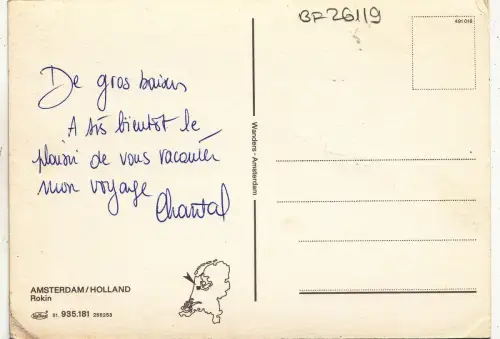 BF26119
491 016
De gros baisers
A très bientôt le
plaisir de vous raconter
mon voyage
Chantal
Wanders - Amsterdam
AMSTERDAM/HOLLAND
Rokin
51. 935.181 255253